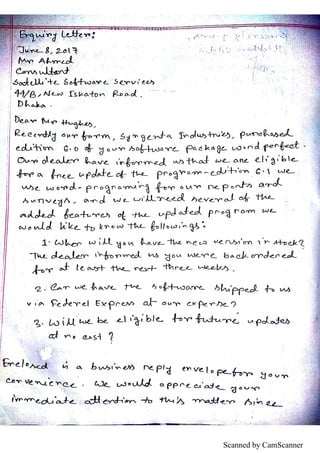 Enquiry Letter:
June 8, 2017
Mr Ahmed
Consultent
Satellite Software Services
44/B, New Iskaton Road.
Dhaka.
Dear Mr Hughes,
Recently our form, Syngenta Industries, purchased
edition 6.0 of your software package word perfect.
Our dealer have informed us that we are eligible
for a free update of the program-edition 6.1 we
use word-programing for our reports and
surveys, and we will need several of the
added features of the updated program we
would like to know the followings:
1. When will you have the new version in stock?
The dealer informed us you were back ordered
for at least the next three weeks.
2. Can we have the software shipped to us
via Federel Express at our expense?
3. Will we be eligible for future updates
at no cost?
Enclosed is a business reply envelope for your
convenience. We would appreciate your
immediate attention to this matter since
Scanned by CamScanner